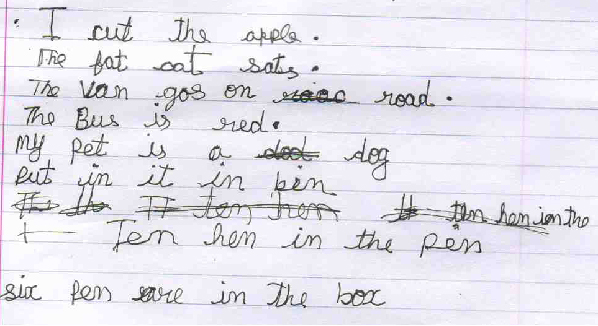 I cut the apple.
The fat cat sats.
The Van gos on road.
The Bus is red.
My pet is a dog
put in it in pen
ten hen ten hen in the
Ten hen in the pen
six pen are in the box